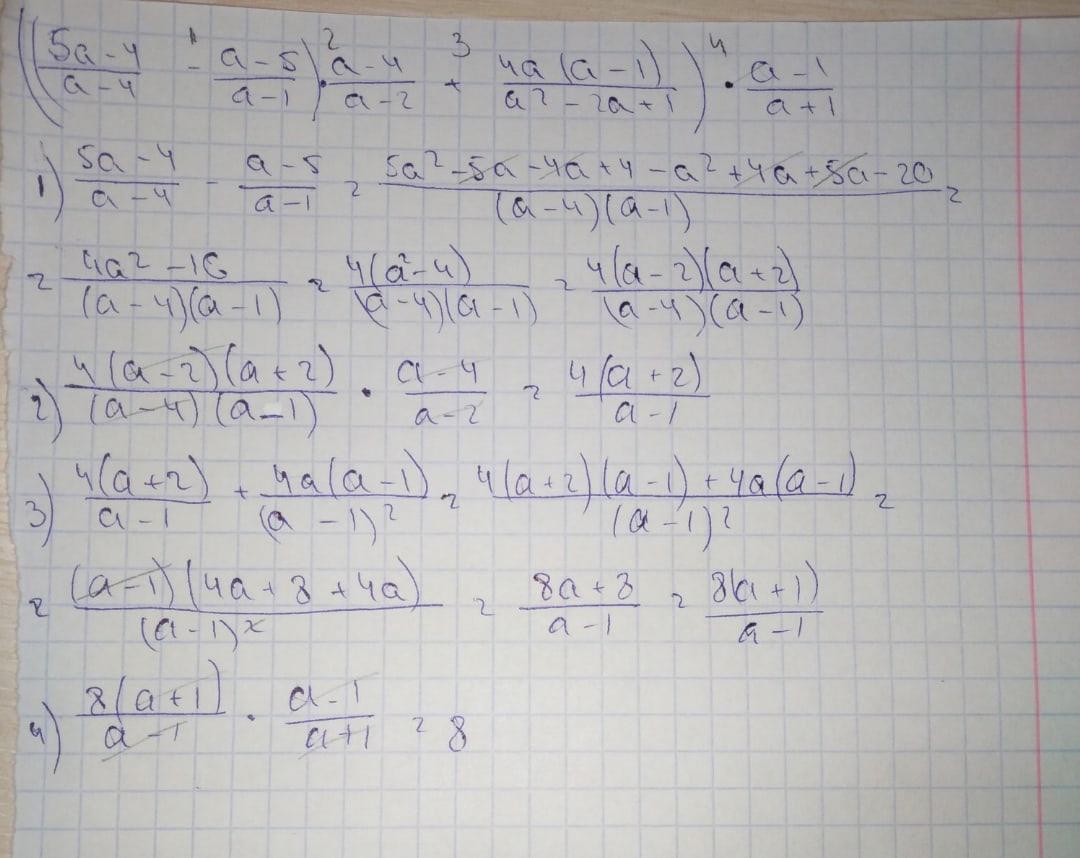 ((5a-4)/(a-4) -¹ (a-5)/(a-1)) ·² (a-4)/(a-2) +³ (4a(a-1))/(a²-2a+1)) ·⁴ (a-1)/(a+1)
1) (5a-4)/(a-4) - (a-5)/(a-1) = (5a²-5a-4a+4-a²+4a+5a-20)/((a-4)(a-1)) =
= (4a²-16)/((a-4)(a-1)) = (4(a²-4))/((a-4)(a-1)) = (4(a-2)(a+2))/((a-4)(a-1))
2) (4(a-2)(a+2))/((a-4)(a-1)) · (a-4)/(a-2) = (4(a+2))/(a-1)
3) (4(a+2))/(a-1) + (4a(a-1))/((a-1)²) = (4(a+2)(a-1)+4a(a-1))/((a-1)²) =
= ((a-1)(4a+8+4a))/((a-1)²) = (8a+8)/(a-1) = (8(a+1))/(a-1)
4) (8(a+1))/(a-1) · (a-1)/(a+1) = 8